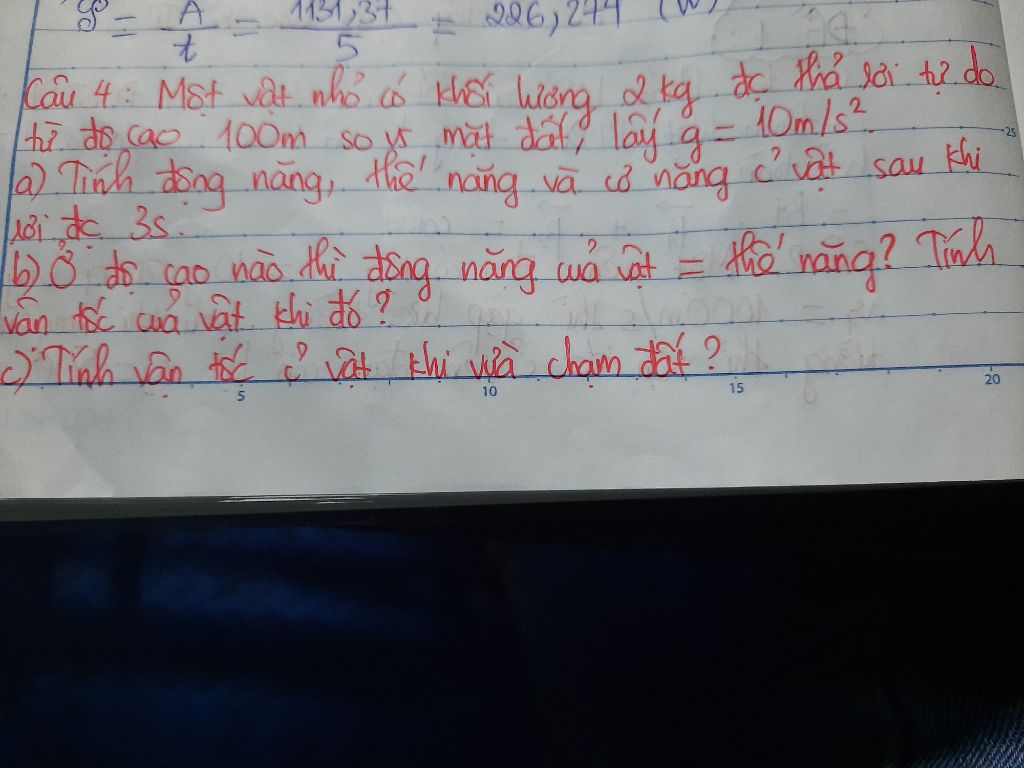 P = A / t = 1131,37 / 5 = 226,274 (W)
Câu 4: Một vật nhỏ có khối lương 2kg đc thả rơi tự do
từ độ cao 100m so vs mặt đất, lấy g = 10m/s².
a) Tính động năng, thế năng và cơ năng c̉ vật sau khi
rơi đc 3s.
b) Ở độ cao nào thì động năng của vật = thế năng? Tính
vân tốc của vật khi đó?
c) Tính vân tốc c̉ vật khi vừa chạm đất?
25
5 10 15 20